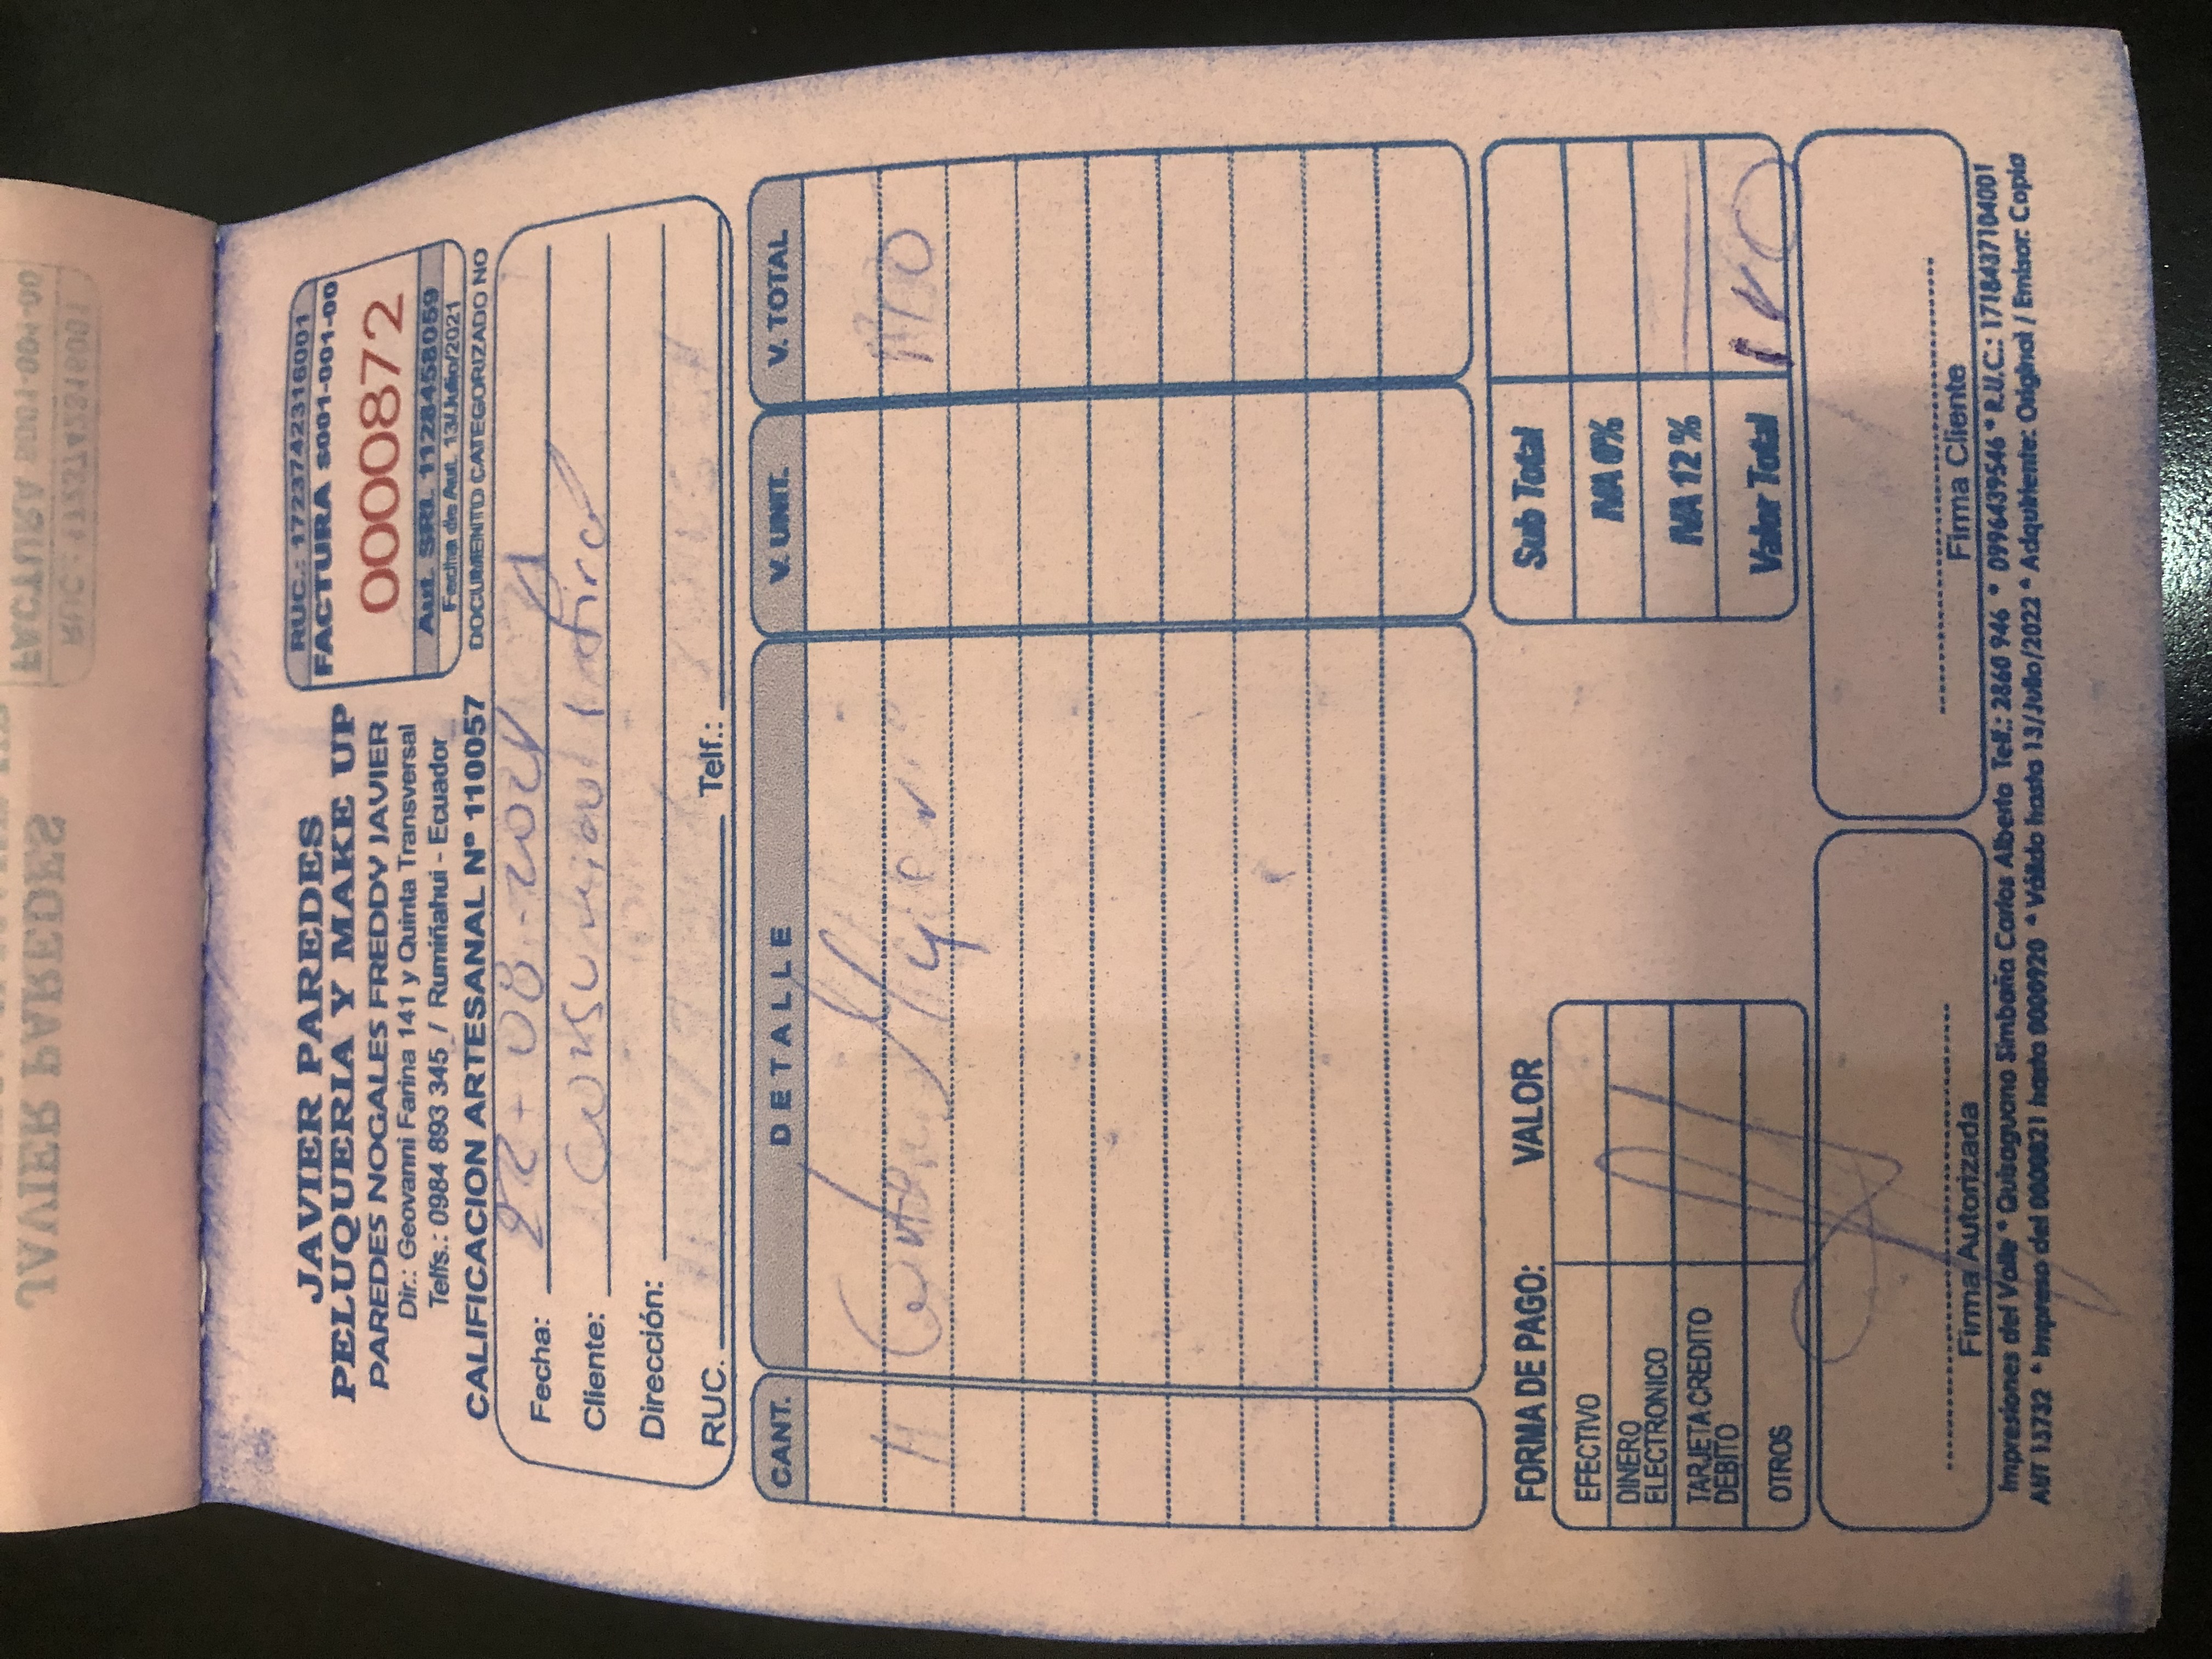 JAVIER PAREDES
FACTURA S001-001-00
RUC.: 1723742316001
JAVIER PAREDES
PELUQUERIA Y MAKE UP
PAREDES NOGALES FREDDY JAVIER
Dir.: Geovanni Farina 141 y Quinta Transversal
Telfs.: 0984 893 345 / Rumiñahui - Ecuador
CALIFICACION ARTESANAL Nº 110057
RUC.: 1723742316001
FACTURA S001-001-00
0000872
Aut. SRI. 1128458059
Fecha de Aut. 13/Julio/2021
DOCUMENTO CATEGORIZADO NO
Fecha: 22-08-2021
Cliente: Consumidor Final
Dirección:
RUC. Telf.:
CANT. DETALLE V. UNIT. V. TOTAL
Corte Mujer
FORMA DE PAGO: VALOR
EFECTIVO
DINERO
ELECTRONICO
TARJETA CREDITO
DEBITO
OTROS
Sub Total
IVA 0%
IVA 12%
Valor Total
Firma Autorizada
Firma Cliente
Impresiones del Valle * Quisaguano Simbaña Carlos Alberto Telf.: 2860 946 * 0996439546 * R.U.C.: 1718437104001
AUT 13732 * Impreso del 0000821 hasta 0000920 * Válido hasta 13/Julio/2022 * Adquiriente: Original / Emisor: Copia